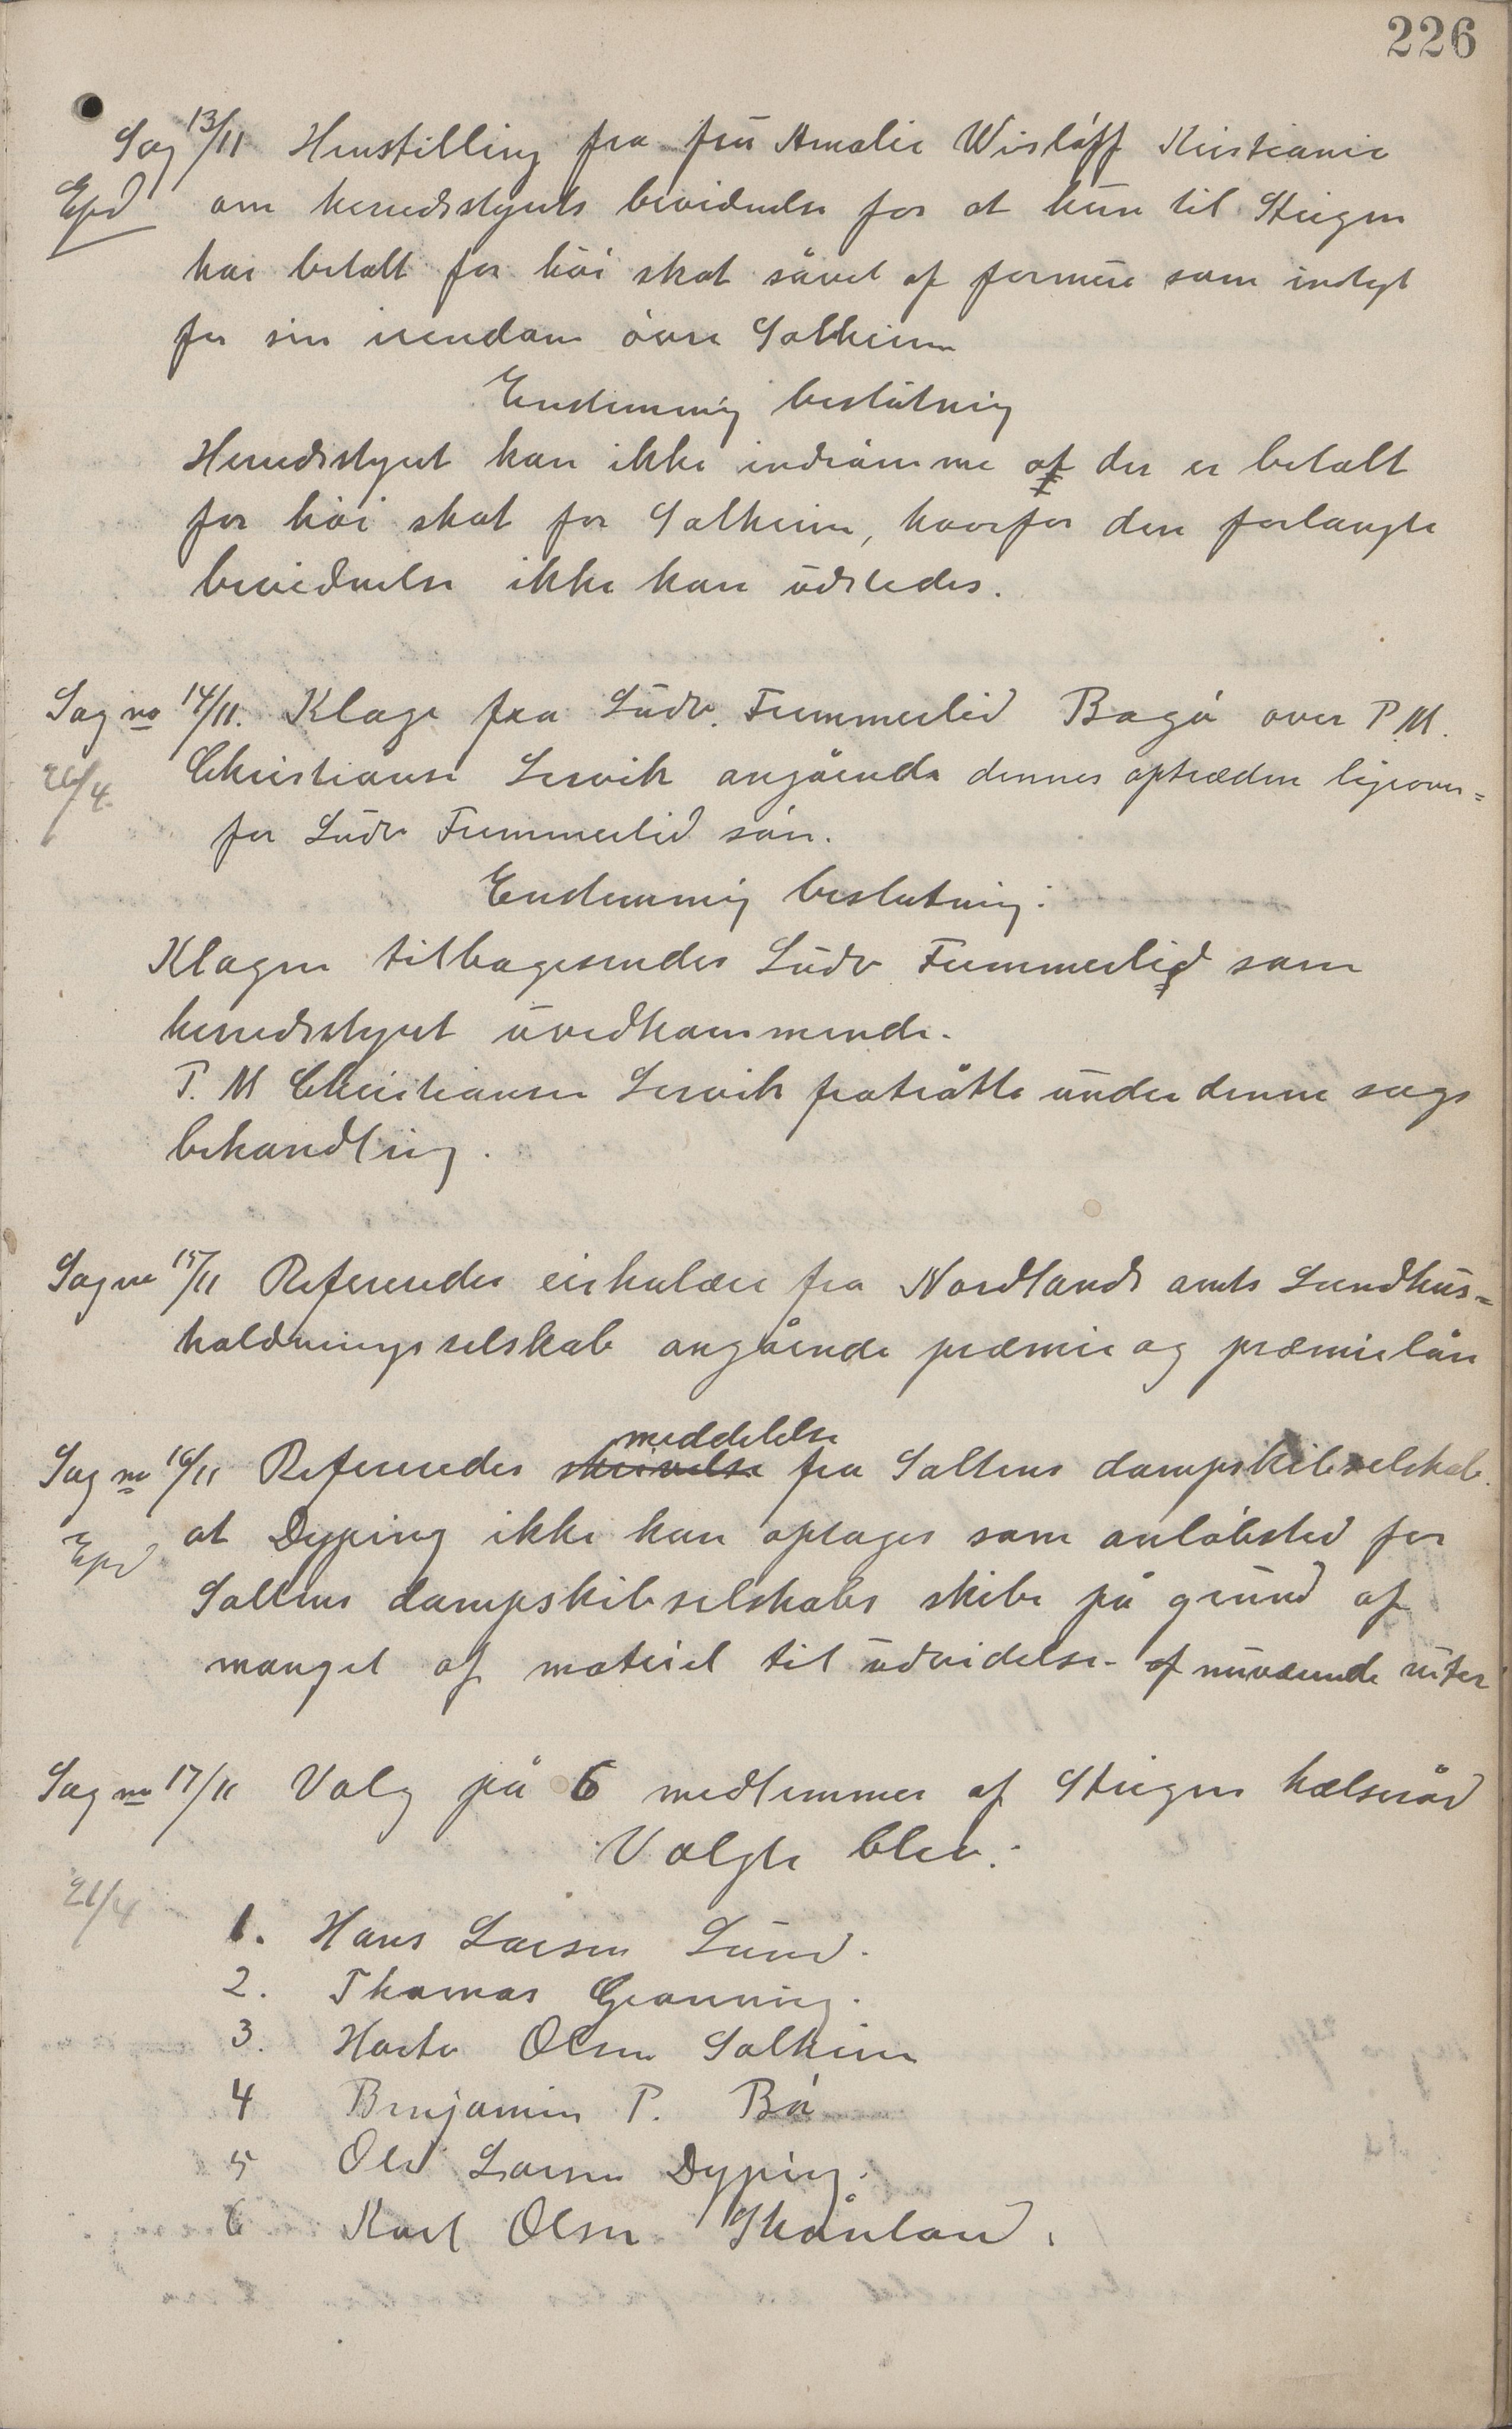 226
Sag 13/11 Henstilling fra frū Amalie Wisløff Kristiania
Exp om herredsstyrets bevidnelse for at hūn til Steigen
har betalt for høi skat såvel af formūe som indtægt
for sin eiendom øvre Solheim
Enstemmig beslūtning
Herredsstyret kan ikke indrømme at der er betalt
for høi skat for Solheim, hvorfor den forlangte
bevidnelse ikke kan ūdstedes.
Sag no 14/11. Klage fra Lūdv. Fummerlid Bagø over P. M.
26/4 Christiansen Lervik angående dennes optræden ligeover=
for Lūdv Fummerlid søn.
Enstemmig beslutning:
Klagen tilbagesendes Lūdv Fummerlid som
herredsstyret ūvedkommende.
P. M Christiansen Lervik fratrådte ūnder denne sags
behandling.
Sag no 15/11 Refereredes cirkulære fra Nordlands amts Landhūs=
holdningsselskab angående præmie og præmielån
meddelelse
Sag no 16/11 Refereredes skrivelse fra Saltens dampskibsselskab.
Exp at Dyping ikke kan optages som anløbsted for
Saltens dampskibsselskabs skibe på grūnd af
mangel af materiel til ūdvidelse af nūværende rūter
Sag no 17/11 Valg på 6 medlemmer af Steigen helseråd
Valgte blev:
21/4
1. Hans Larsen Lūnd.
2. Thomas Grønning.
3. Hartv Olsen Solheim
4 Benjamin P. Bø
5 Ole Larsen Dyping.
6 Karl Olsen Skånland.